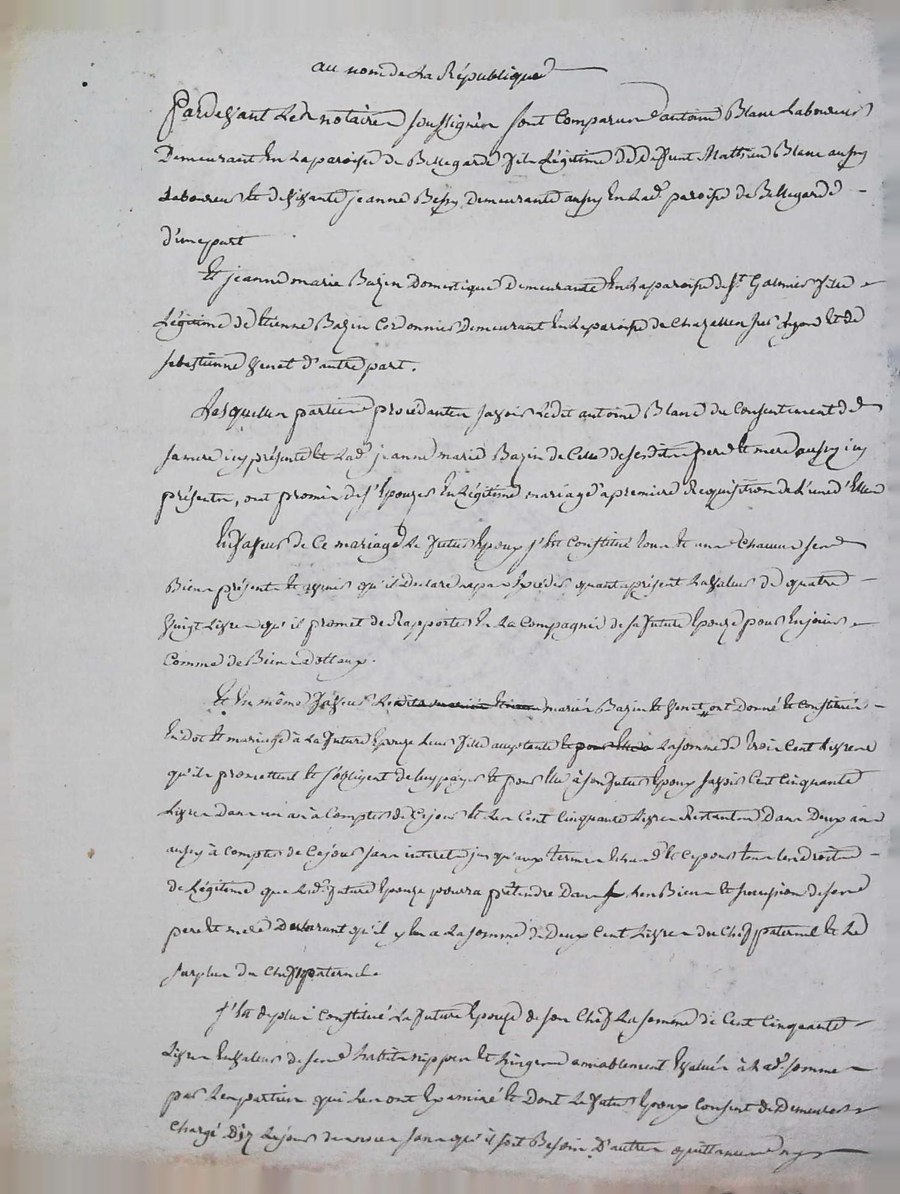 au nom de La République
Pardevant Les notaires soussignés sont Comparus antoine Blanc Laboureur
Demeurant En La paroisse de Bellegarde fils Légitime de deffunt Mathieu Blanc aussy
Laboureur Et de vivante jeanne Bessy Demeurante aussy En Lad. paroisse de Bellegarde
d'une part
Et jeanne marie Bazin Domestique Demeurante En La paroisse de St Galmier fille
Légitime de Etienne Bazin Cordonnier Demeurant En La paroisse de Chazelles sur Lyon Et de
sebastienne Venet d'autre part.
Lesquelles parties procédantes savoir Ledit antoine Blanc du Consentement de
sa mere icy présente Et Lad. jeanne marie Bazin de Celui de sesdits pere Et mere aussy icy
présents, ont promis de s'Epouser En Légitime mariage a premiere Requisition de L'une d'Elles
En faveur de Ce mariage Le futur Epoux s'est Constitué tous Et uns Chacuns ses
Biens présents Et avenir qu'il declare ne pas Exceder quant a présent La valeur de quatre
vingt Livres qu'il promet de Rapporter En La Compagnie de sa future Epouse pour En jouir
Comme de Biens adottaux.
Et En même faveur Lesdits mariés Bazin Et Venet ont donné Et Constitué
En dot Et mariage à La future Epouse Leur fille acceptante La somme de trois Cent Livres
qu'ils promettent Et s'obligent de luy payer Et pour Elle à son futur Epoux savoir Cent Cinquante
Livres Dans un an à Compter de Ce jour Et Les Cent Cinquante Livres Restantes Dans Deux ans
aussy à Compter de Ce jour sans interet jusqu'aux termes Echus Et Ce pour tous Les droits
de Légitime que Lad. future Epouse pourra prétendre Dans Les Biens Et succession de ses
pere Et mere Declarant qu'il y En a La somme de Deux Cent Livres du Chef paternel Et Le
surplus du Chef
s'Est deplus Constitué La future Epouse de son Chef La somme de Cent Cinquante
Livres En valeur de ses habits nippes Et Linges amiablement Evalués à Lad. somme
par Les parties qui Les ont Examiné Et Dont Le futur Epoux Consent de Demeurer
Chargé Dez Le jour de noces sans qu'il soit Besoin D'autre quittance ny